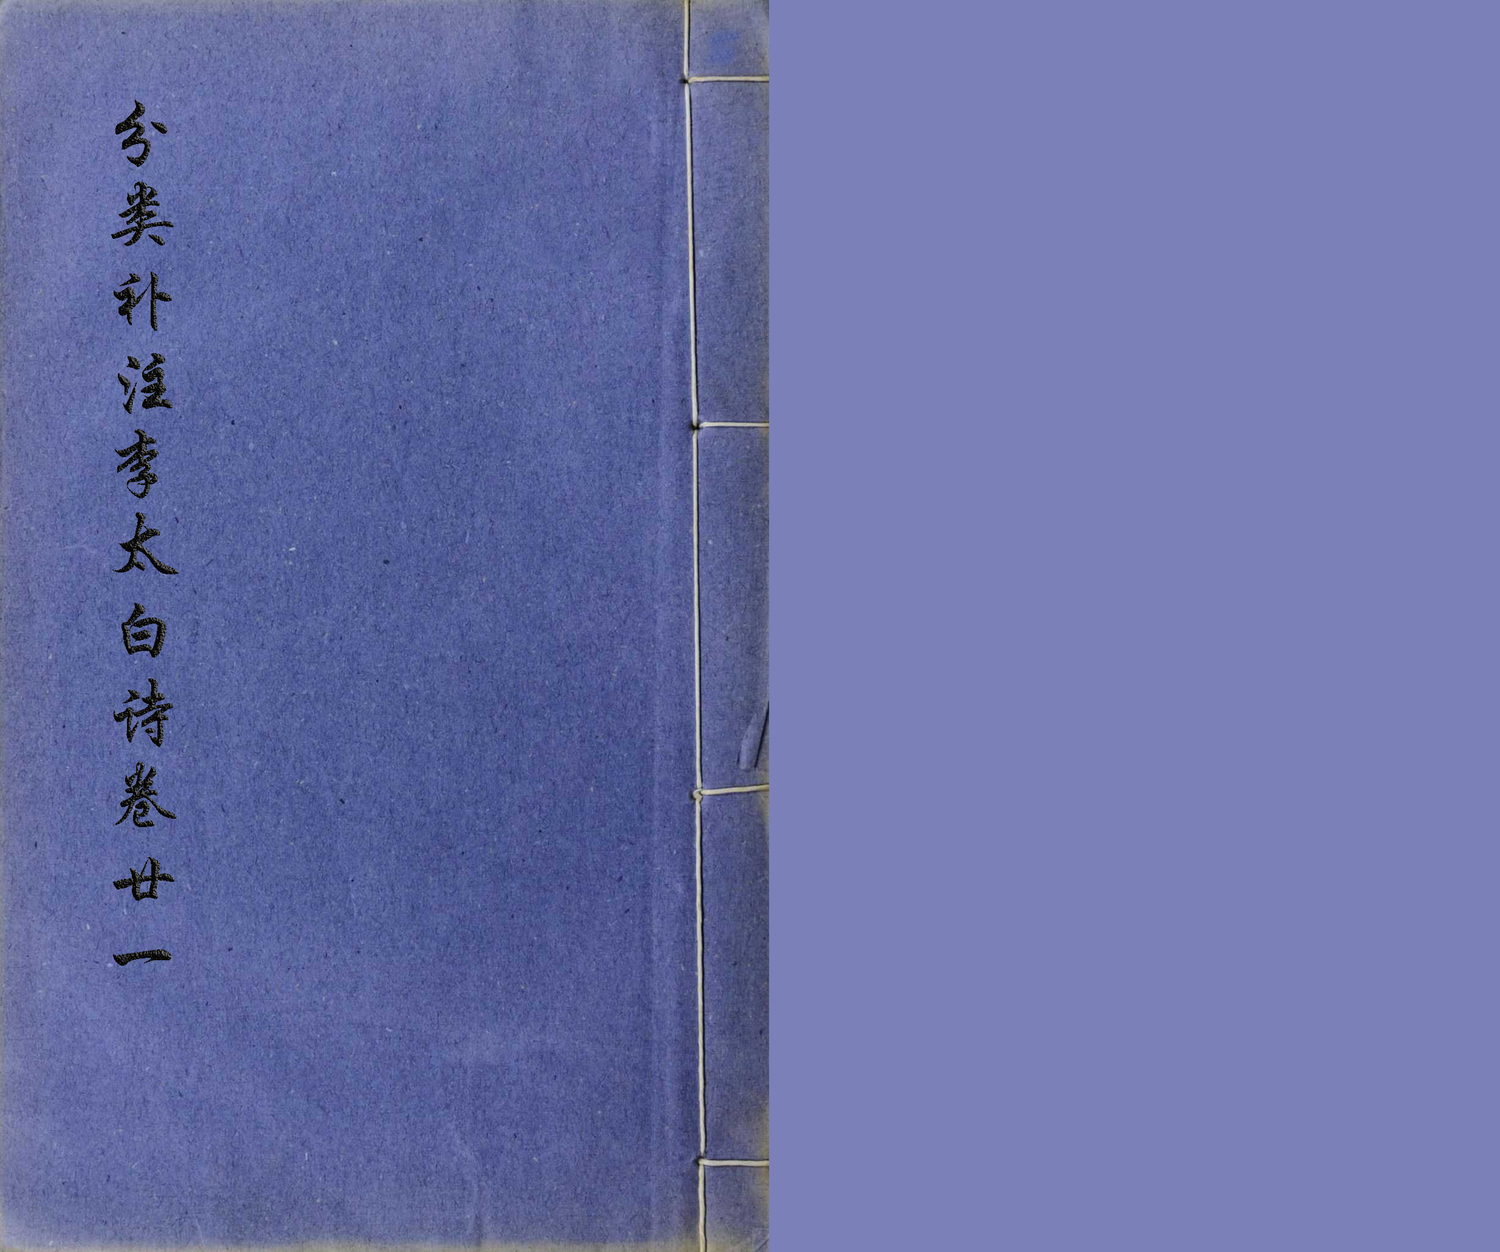 分类补注李太白诗卷廿一